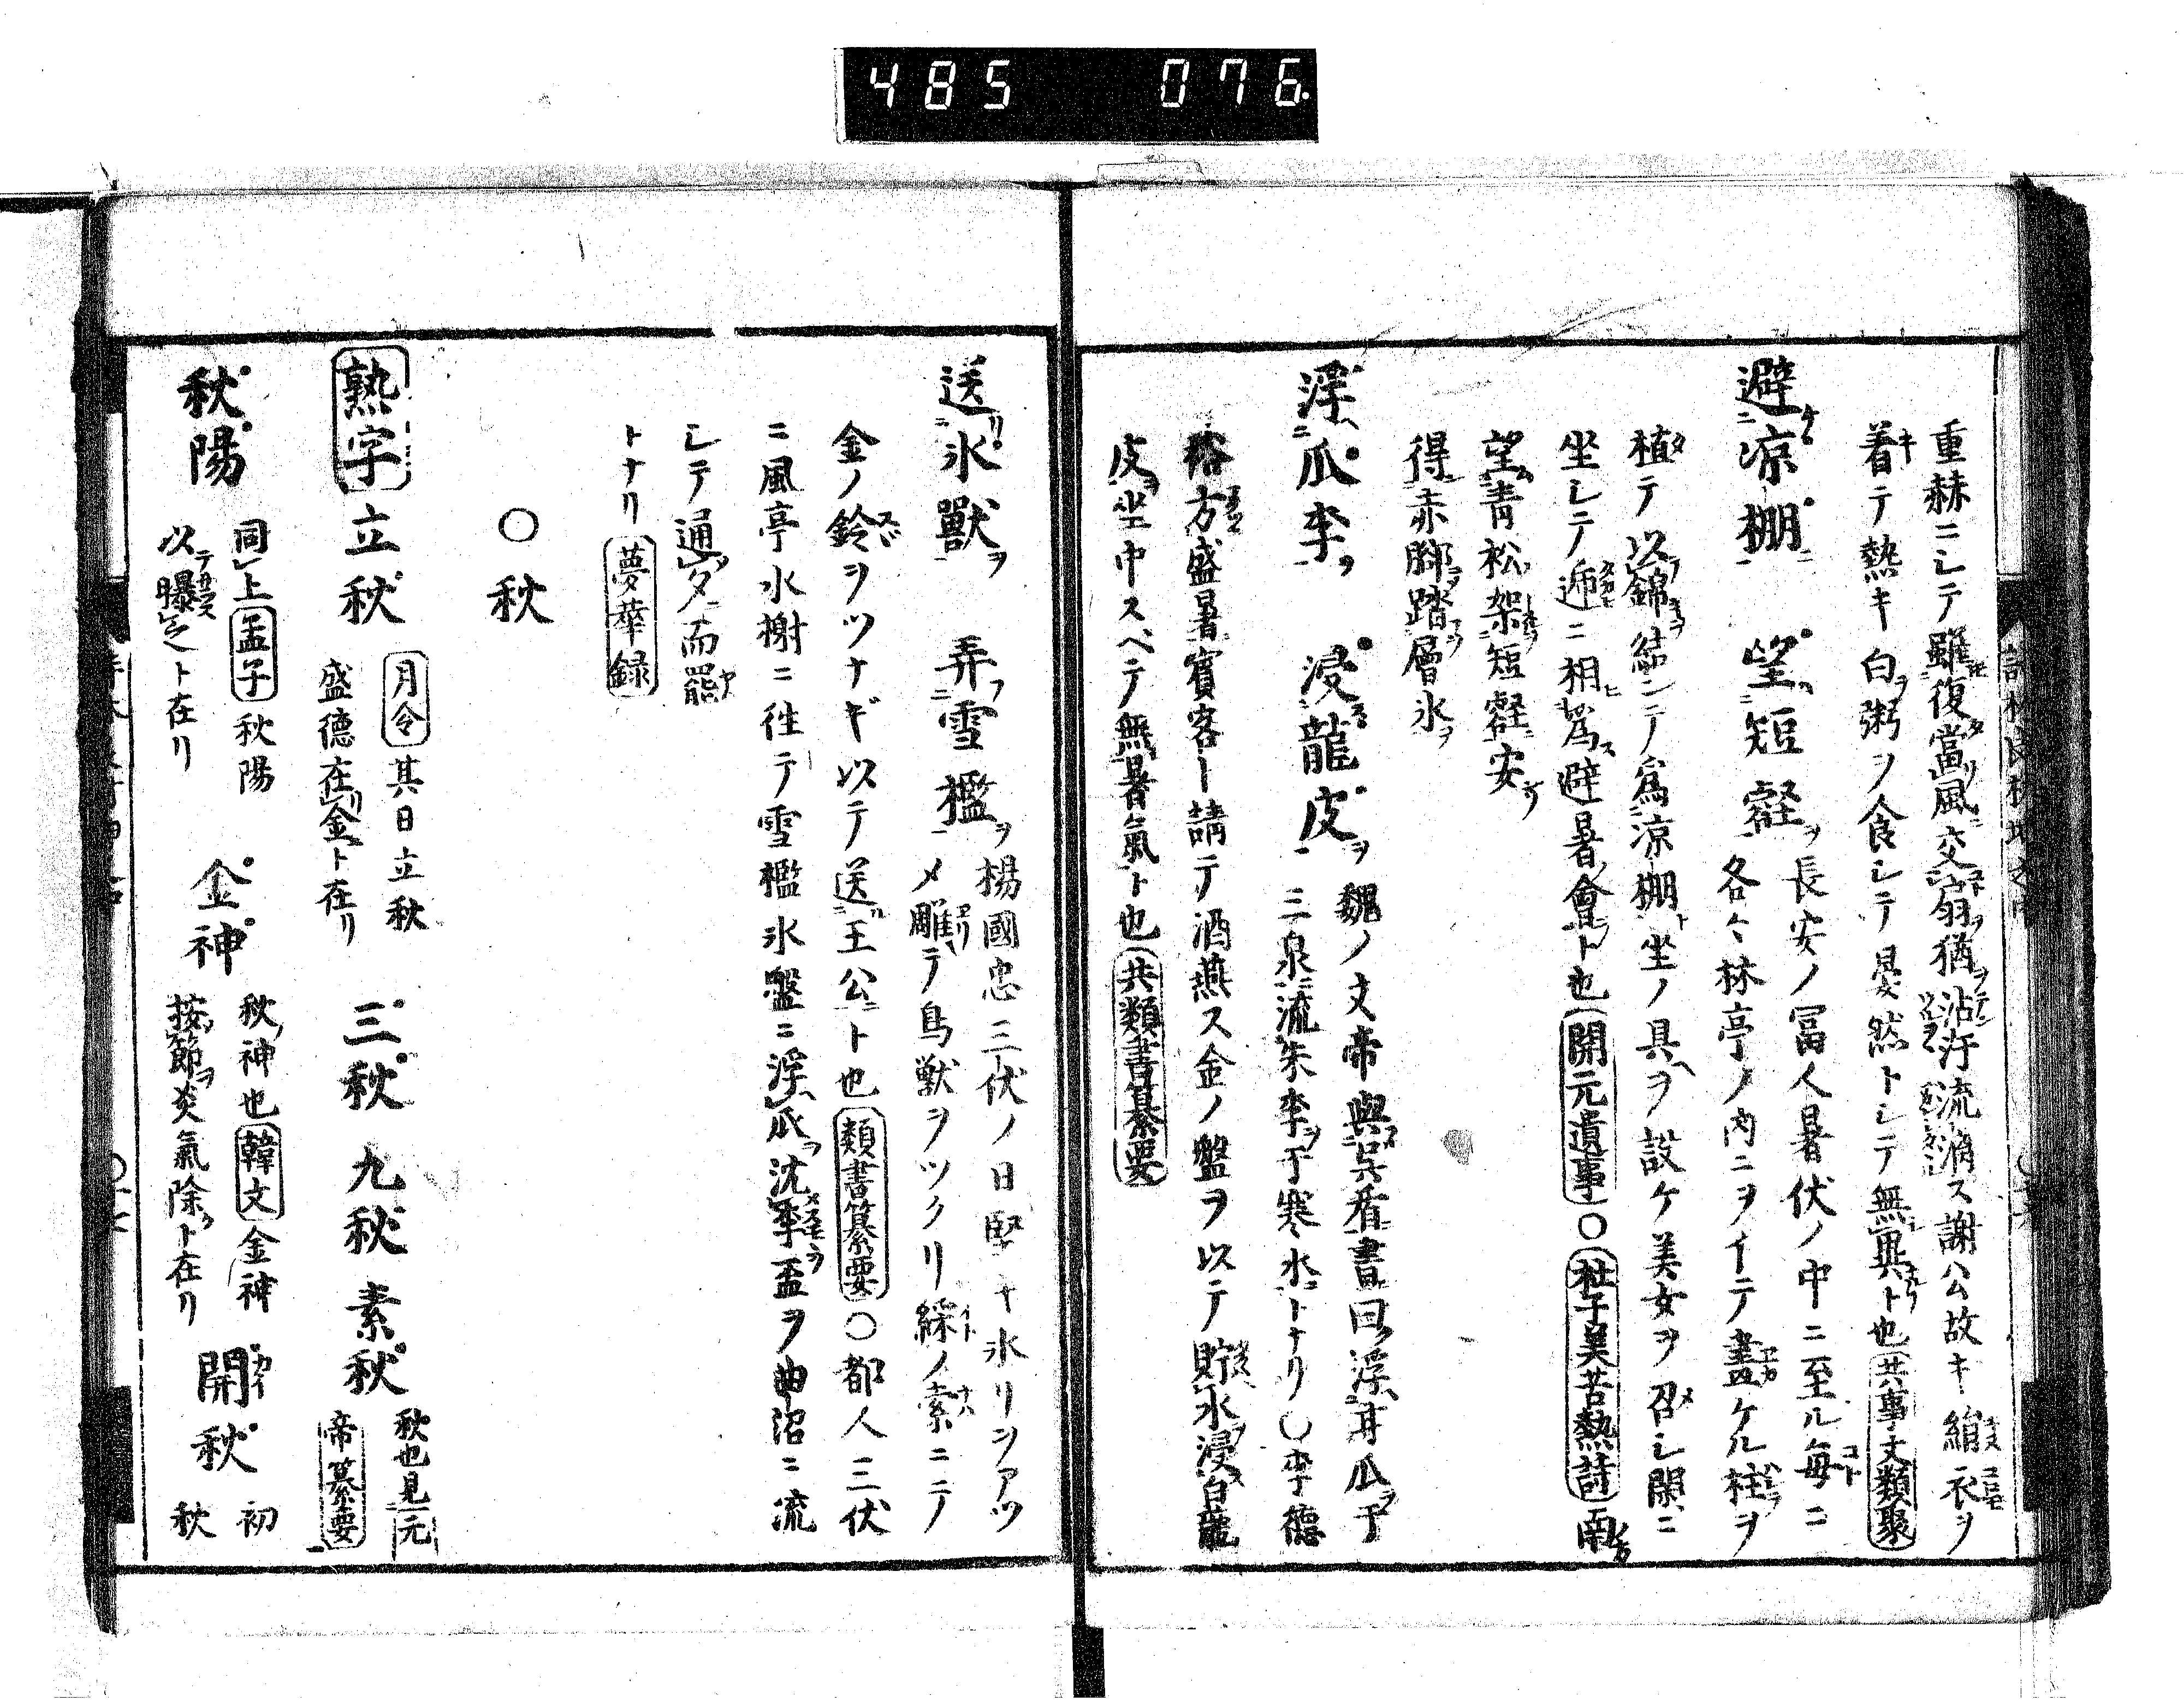 485 076.
重赫ニシテ雖復當風交扇猶沾汗流滴ス謝公故キ絹衣ヲ
着テ熱キ白粥ヲ食シテ晏然トシテ無異ト也 共事文類聚
避凉棚 望短壑
長安ノ冨人暑伏ノ中ニ至ル毎ニ
各々林亭ノ内ニヲイテ畫ケル柱ヲ
植テ以錦結ンテ爲凉棚坐ノ具ヲ設ケ美女ヲ召シ閑ニ
坐シテ逓ニ相爲避暑會ト也 開元遺事 〇 杜子美苦熱詩 南
望青松架短壑安
得赤脚踏層氷
浮瓜李 浸龍皮
魏ノ文帝與呉看書曰浮甘瓜于
三泉流朱李于寒水トナリ〇李德
裕方盛暑賓客ト請テ酒燕ス金ノ盤ヲ以テ貯水浸白龍
皮坐中スベテ無暑氣ト也 共類書纂要
送氷獸 弄雪檻
楊國忠三伏ノ日堅ナ氷リヲアツ
メ雕テ鳥獣ヲツクリ綵ノ索ニテ
金ノ鈴ヲツナギ以テ送王公ト也 類書纂要 〇都人三伏
ニ風亭水榭ニ往テ雪檻氷盤ニ浮瓜沈李盃ヲ曲沼ニ流
シテ通夕而罷
トナリ 夢華録
〇秋
熟字 立秋
月令 其日立秋
盛德在金ト在リ
三秋 九秋 素秋
秋也見元
帝纂要
秋陽
同上 孟子 秋陽
以曝之ト在リ
金神
秋ノ神也 韓文 金神
按節炎氣除ト在リ
開秋
初
秋